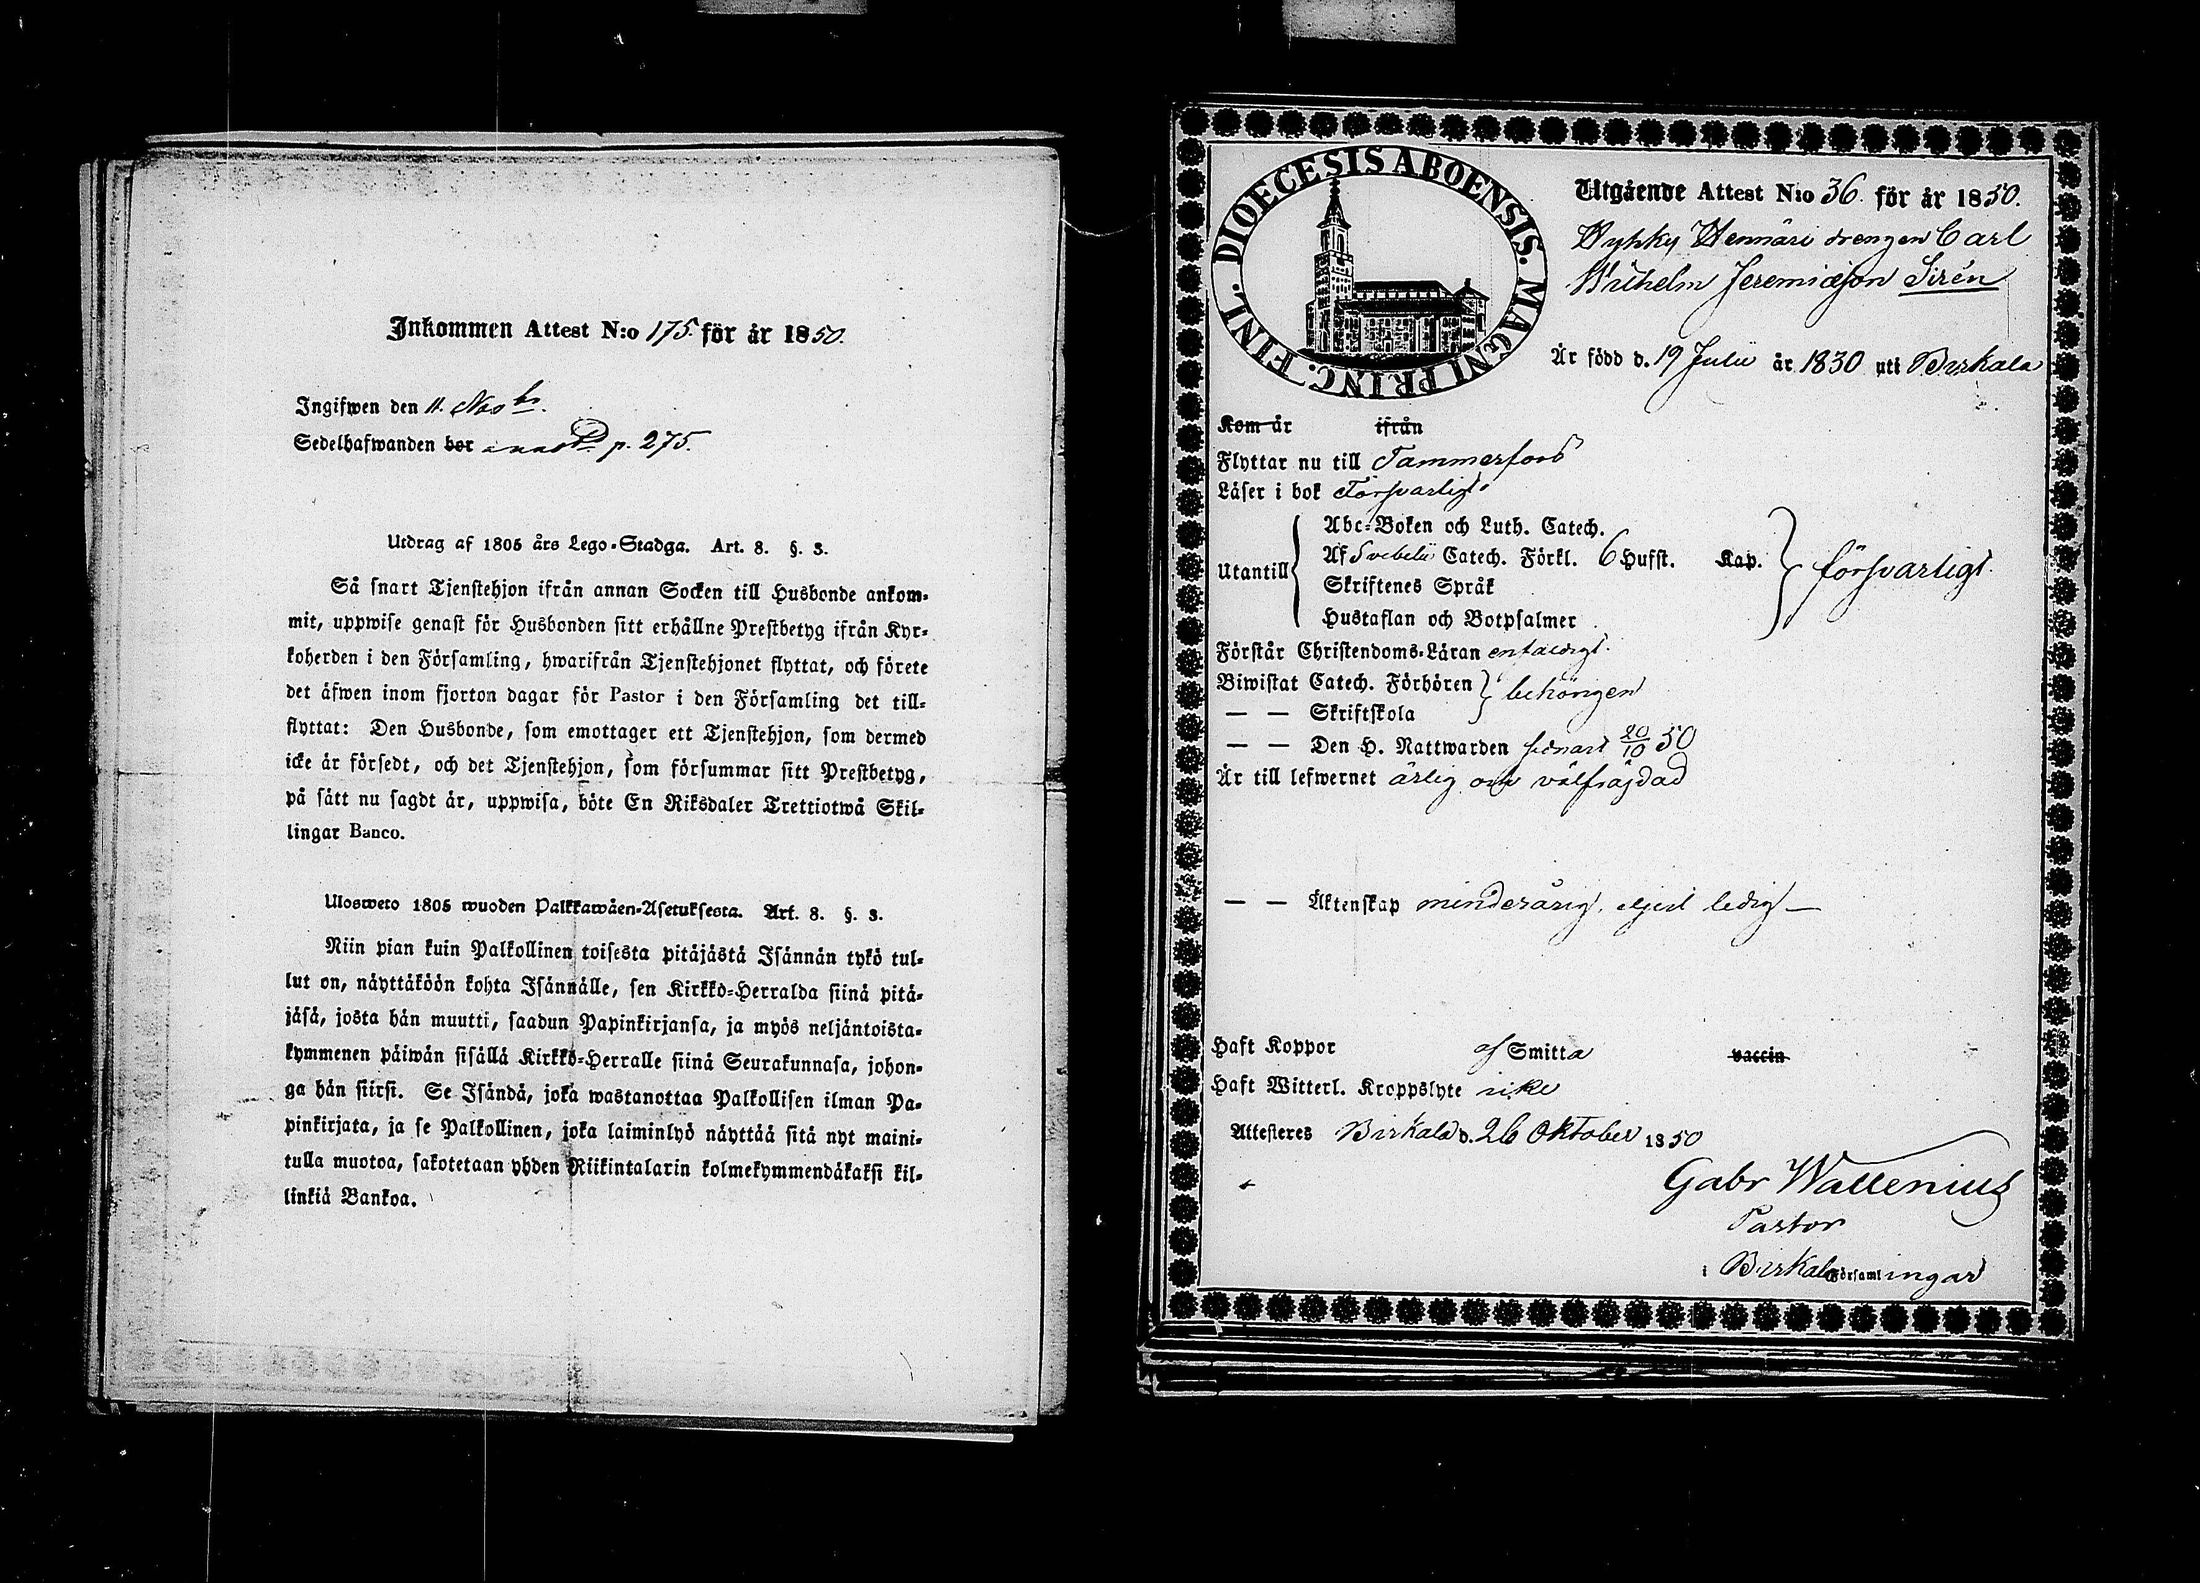 Inkommen Attest N:o 175. för år 1850.
Ingifwen den 11. Novbr.
Sedelhafwanden bor p. 275.
Utdrag af 1805 års Lego-Stadga. Art. 8. §. 3.
Så snart Tjenstehjon ifrån annan Socken till Husbonde ankom-
mit, uppwise genast för Husbonden sitt erhållne Prestbetyg ifrån Kyr-
koherden i den Församling, hwarifrån Tjenstehjonet flyttat, och förete
det äfwen inom fjorton dagar för Pastor i den Församling det till-
flyttat: Den Husbonde, som emottager ett Tjenstehjon, som dermed
icke är försedt, och det Tjenstehjon, som försummar sitt Prestbetyg,
på sätt nu sagdt är, uppwisa, böte En Riksdaler Trettiotwå Skil-
lingar Banco.
Ulosweto 1805 wuoden Palkkawäen-Asetuksesta. Art. 8. §. 3.
Niin pian kuin Palkollinen toisesta pitäjästä Isännän tykö tul-
lut on, näyttäköön kohta Isännälle, sen Kirkko-Herralda siinä pitä-
jäsä, josta hän muutti, saadun Papinkirjansa, ja myös neljäntoista-
kymmenen päiwän sisällä Kirkko-Herralle siinä Seurakunnasa, johon-
ga hän siirsi. Se Isändä, joka wastanottaa Palkollisen ilman Pa-
pinkirjata, ja se Palkollinen, joka laiminlyö näyttää sitä nyt maini-
tulla muotoa, sakotetaan yhden Riikintalarin kolmekymmendäkaksi kil-
linkiä Bankoa.
DIOECESIS ABOENSIS. MAGNI PRINC. FINL.
Utgående Attest N:o 36. för år 1850.
Hennäri drengen Carl
Wilhelm Jeremiæson Sirén
Är född d. 19 Julii år 1830 uti Birkala
Kom år ifrån
Flyttar nu till Tammerfors
Läser i bok Försvarligt.
Abc-Boken och Luth. Catech.
Utantill Af Svebelii Catech. Förkl. 6 Hufst. Kap. försvarligt.
Skriftenes Språk
Hustaflan och Botpsalmer
Förstår Christendoms-Läran enfaldigt.
Biwistat Catech. Förhören behörigen
— — Skriftskola
— — Den H. Nattwarden senast 20/10 50
Är till lefwernet ärlig och välfrägdad
— — Äktenskap minderårig, ledig —
Haft Koppor af Smitta vaccin
Haft Witterl. Kroppslyte icke
Attesteres Birkala d. 26 Oktober 1850
Gabr Wallenius
Pastor
i Birkala Församlingar